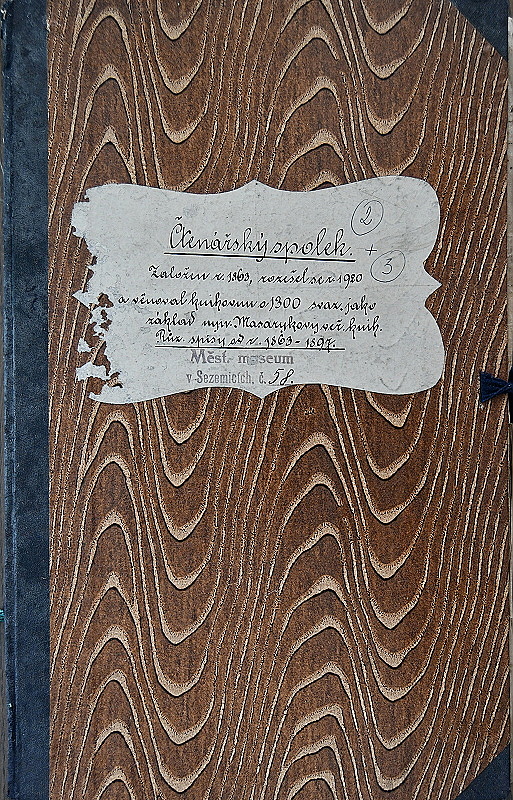 2
Čtenářský spolek. +
3
Založen r. 1863, rozešel se r. 1920
a věnoval knihovnu o 1300 svaz. jako
základ nyn. Masarykovy veř. knih.
Růz. spisy od r. 1863 - 1897.
Měst. museum
v Sezemicích, č. 58.